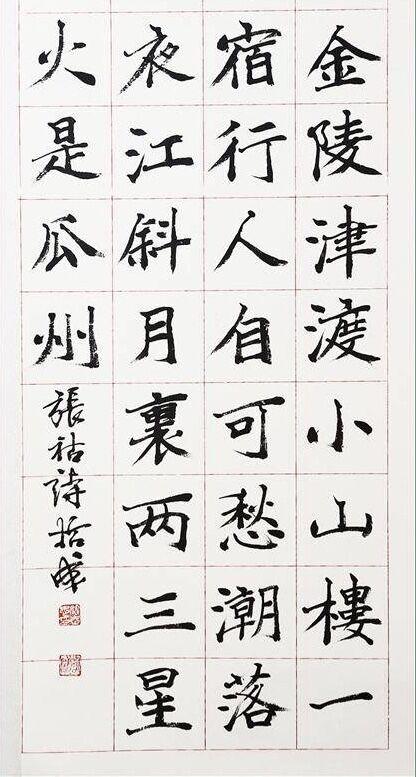 金陵津渡小山樓一
宿行人自可愁潮落
夜江斜月裏两三星
火是瓜州
張祜詩